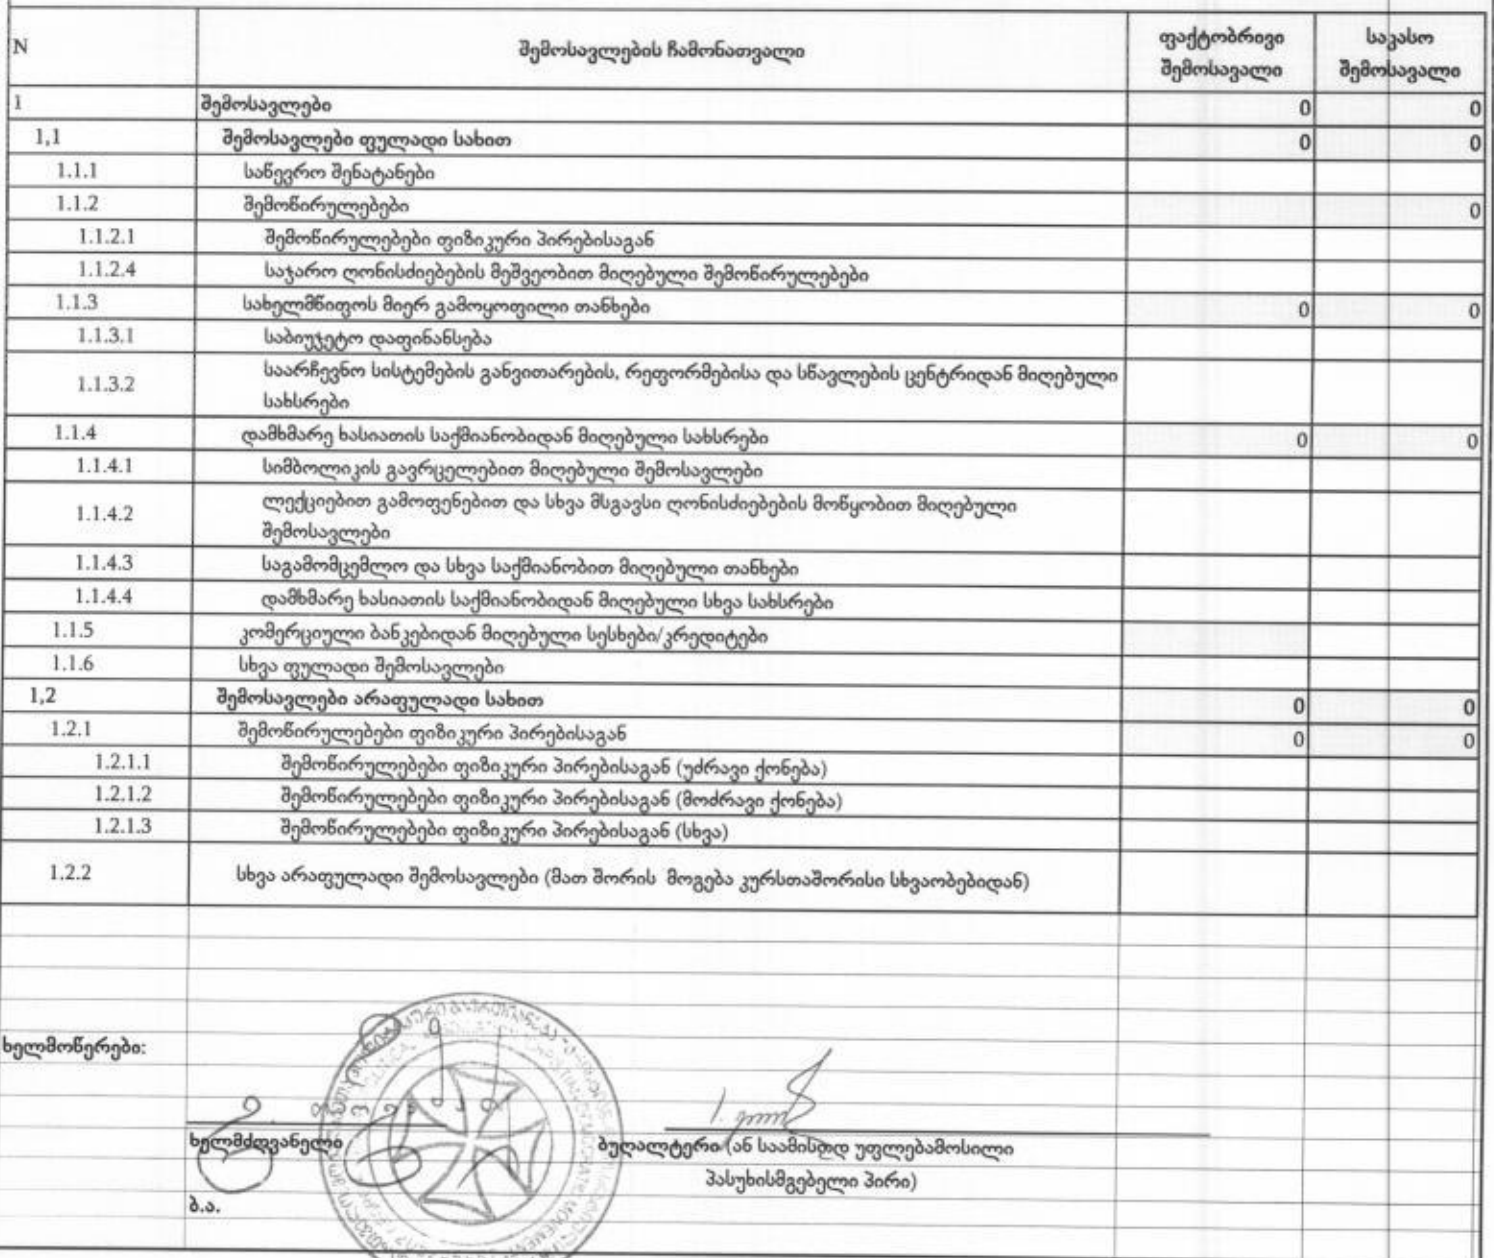 N შემოსავლების ჩამონათვალი ფაქტობრივი შემოსავალი საკასო შემოსავალი
1 შემოსავლები 0 0
1,1 შემოსავლები ფულადი სახით 0 0
1.1.1 საწევრო შენატანები
1.1.2 შემოწირულებები 0
1.1.2.1 შემოწირულებები ფიზიკური პირებისაგან
1.1.2.4 საჯარო ღონისძიებების მეშვეობით მიღებული შემოწირულებები
1.1.3 სახელმწიფოს მიერ გამოყოფილი თანხები 0 0
1.1.3.1 საბიუჯეტო დაფინანსება
1.1.3.2 საარჩევნო სისტემების განვითარების, რეფორმებისა და სწავლების ცენტრიდან მიღებული
სახსრები
1.1.4 დამხმარე ხასიათის საქმიანობიდან მიღებული სახსრები 0 0
1.1.4.1 სიმბოლიკის გავრცელებით მიღებული შემოსავლები
1.1.4.2 ლექციებით გამოფენებით და სხვა მსგავსი ღონისძიებების მოწყობით მიღებული
შემოსავლები
1.1.4.3 საგამომცემლო და სხვა საქმიანობით მიღებული თანხები
1.1.4.4 დამხმარე ხასიათის საქმიანობიდან მიღებული სხვა სახსრები
1.1.5 კომერციული ბანკებიდან მიღებული სესხები/კრედიტები
1.1.6 სხვა ფულადი შემოსავლები
1,2 შემოსავლები არაფულადი სახით 0 0
1.2.1 შემოწირულებები ფიზიკური პირებისაგან 0 0
1.2.1.1 შემოწირულებები ფიზიკური პირებისაგან (უძრავი ქონება)
1.2.1.2 შემოწირულებები ფიზიკური პირებისაგან (მოძრავი ქონება)
1.2.1.3 შემოწირულებები ფიზიკური პირებისაგან (სხვა)
1.2.2 სხვა არაფულადი შემოსავლები (მათ შორის მოგება კურსთაშორისი სხვაობებიდან)
ხელმოწერები:
ხელმძღვანელი ბუღალტერი (ან საამისოდ უფლებამოსილი
პასუხისმგებელი პირი)
ბ.ა.